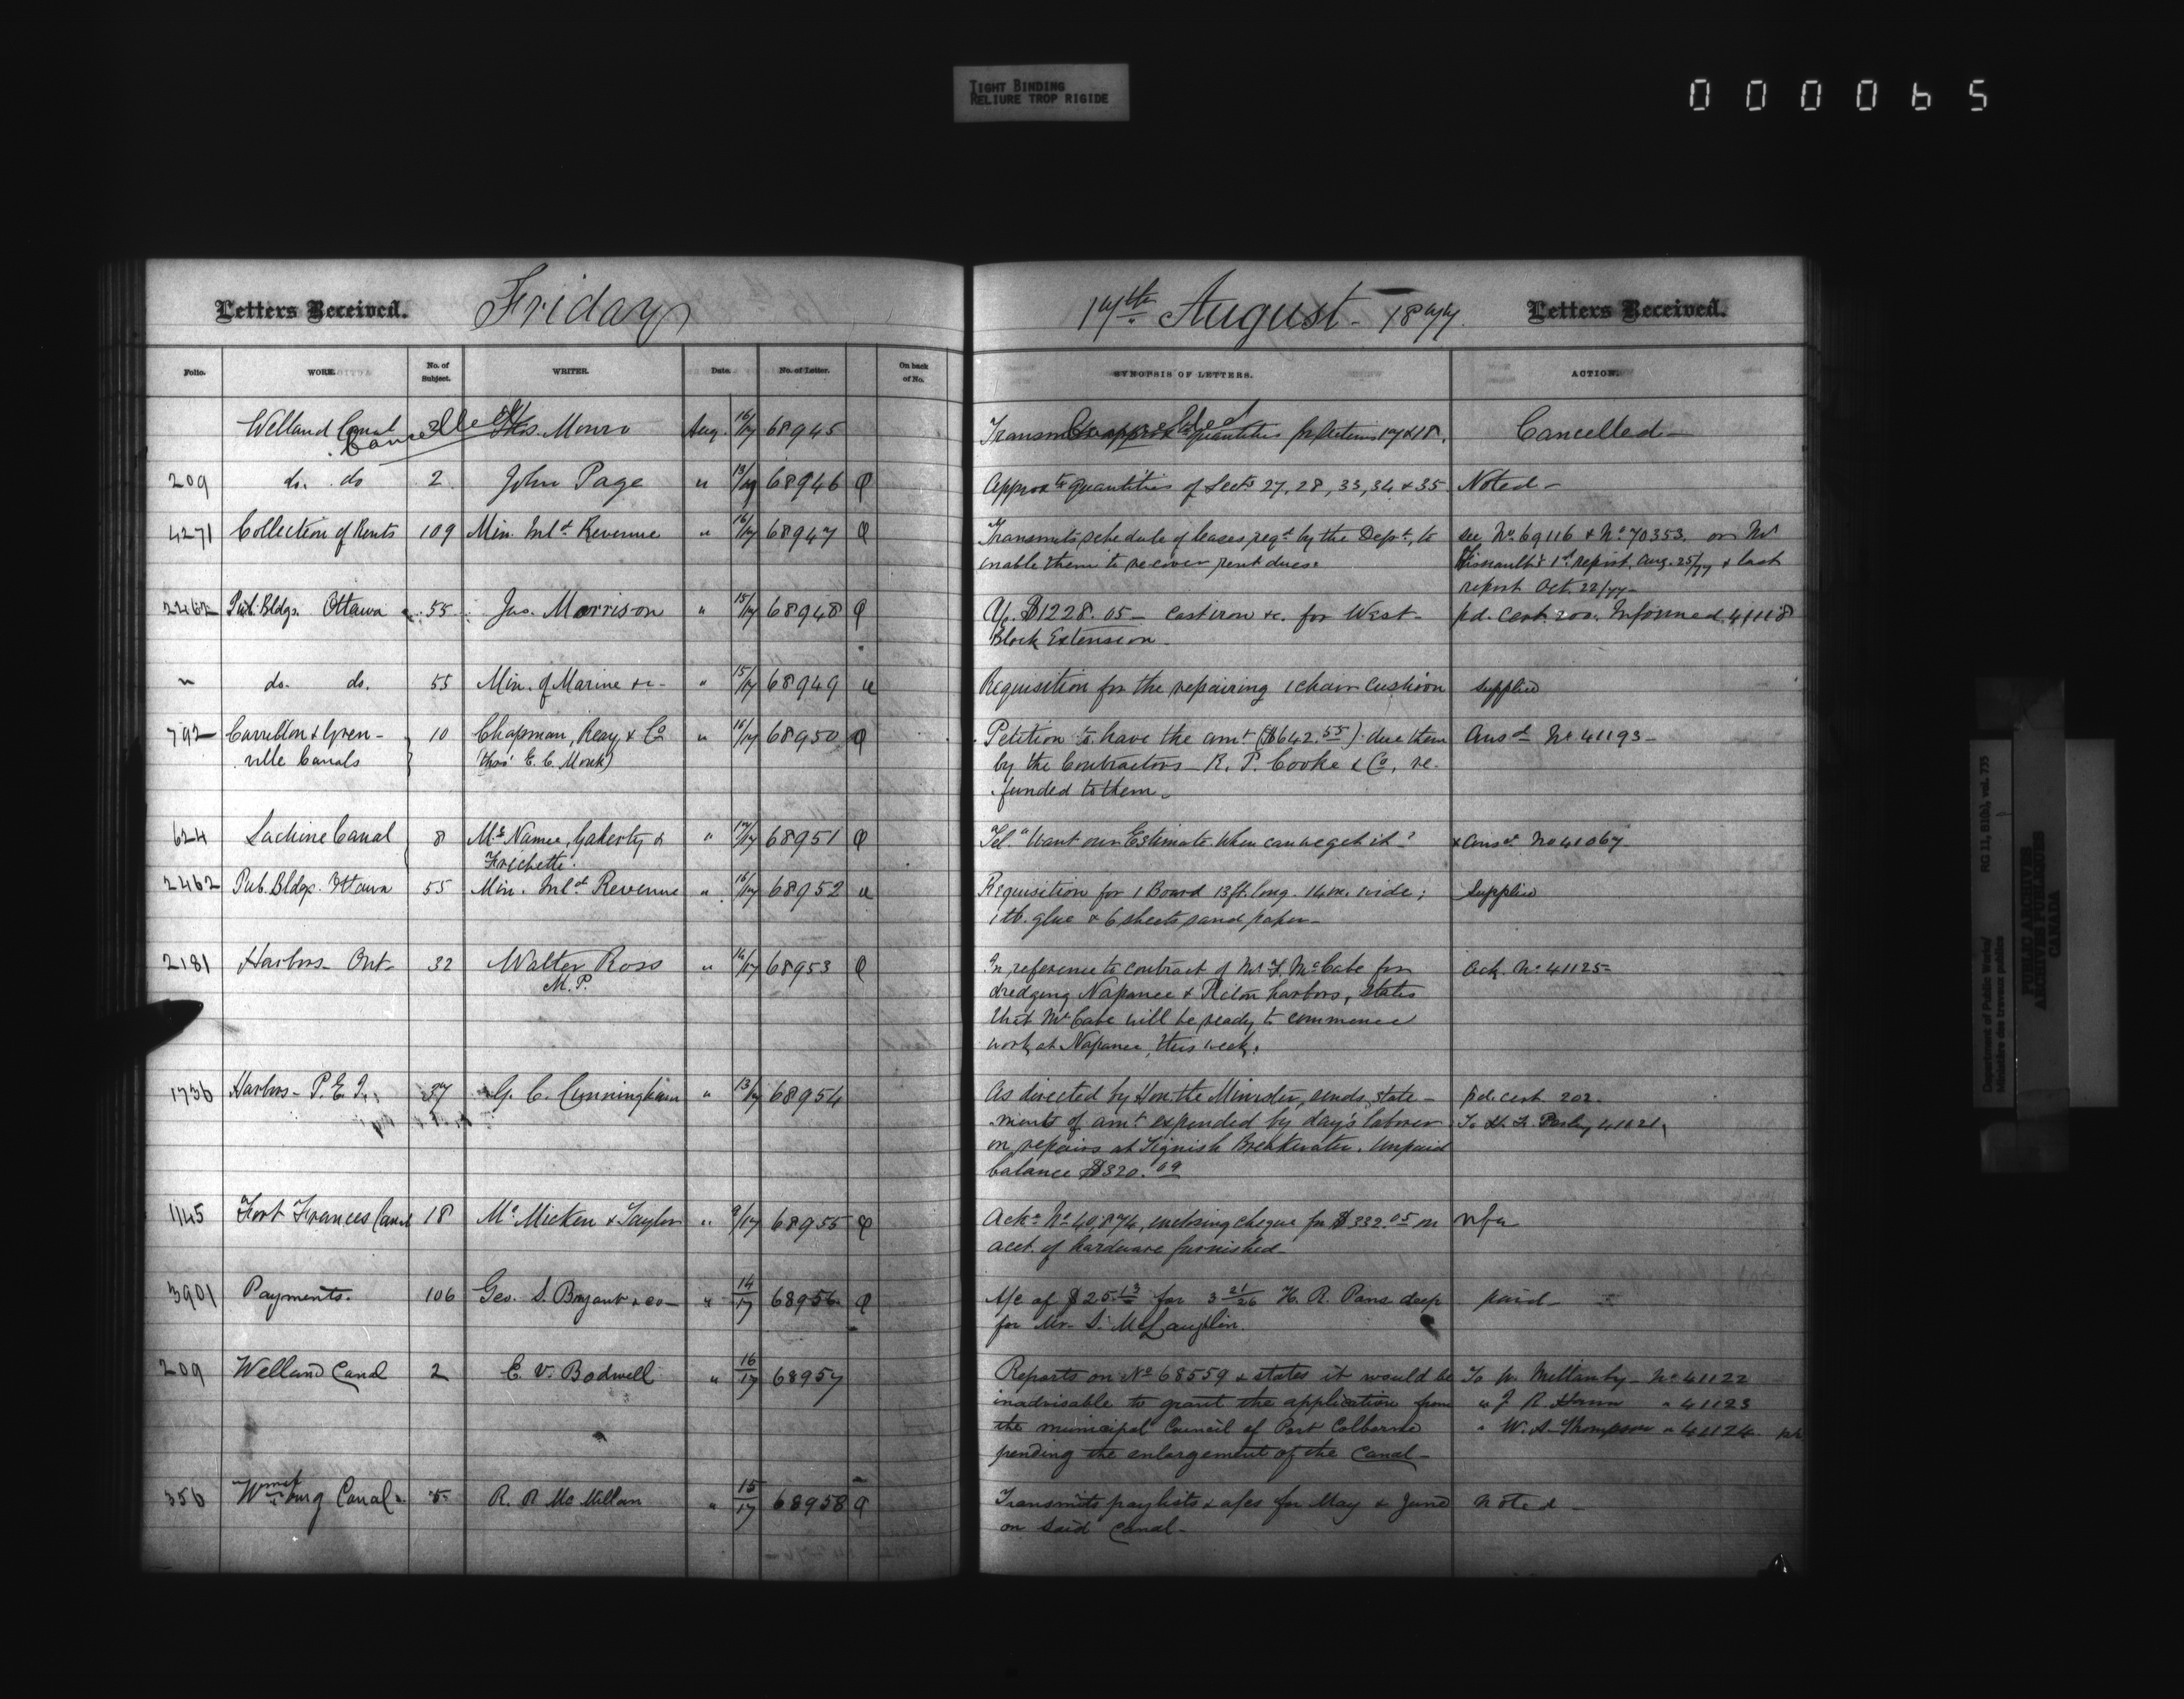 TIGHT BINDING
RELIURE TROP RIGIDE
000065
Letters Received. Friday
17th August - 1877. Letters Received.
Folio. WORK. No. of Subject. WRITER. Date. No. of Letter. On back of No. SYNOPSIS OF LETTERS. ACTION.
Welland Canal Cancelled Thos. Monro Aug. 16/17 68945 Transmits approx quantities for Sections 17 & 18. Cancelled Cancelled
209 do. do 2 John Page " 13/17 68946 Approxte quantities of Sects 27, 28, 33, 34 & 35 Noted -
4271 Collection of Rents 109 Min. Inld Revenue " 16/17 68947 Transmits schedule of leases reqd by the Dept, to see No. 69116 & No 70353. or Mr
enable them to recover rent dues. 1st report, Aug. 25/77 & last
report Oct. 22/77 -
2462 Pub. Bldgs. Ottawa 55 Jas. Morrison " 15/17 68948 A/c. $1228.05 - cast iron &c. for West - pd. Cert. 200. Informed 41118
Block Extension -
" do. do. 55 Min. of Marine &c - " 15/17 68949 Requisition for the repairing 1 chair cushion supplied
792 Carillon & Gren- 10 Chapman, Reay & Co " 16/17 68950 Petition to have the amt ($642.55) due them Ansd No 41193 -
ville Canals (Thos E. C. Monk) by the Contractors - R. P. Cooke & Co, re-
funded to them -
624 Lachine Canal 8 McNamee, Gaherty & " 17/17 68951 Tel. "Want our Estimate. When can we get it? Ansd No 41067
Frechette.
2462 Pub. Bldgs. Ottawa 55 Min. Inld Revenue " 16/17 68952 Requisition for 1 Board 13 ft. long. 14 in. wide; Supplied
1 lb. glue & 6 sheets sand paper -
2181 Harbors - Ont - 32 Walter Ross " 16/17 68953 In reference to contract of Mr F. McCabe for Ack. No 41125 -
M.P. dredging Napanee & Picton harbors, states
that Mr Cabe will be ready to commence
work at Napanee, this week.
1736 Harbors - P. E. I. 37 G. C. Cunningham " 13/17 68954 As directed by Hon. the Minister, sends state- pd. cert. 202.
ments of amt expended by day's labour To 41121
on repairs at Tignish Breakwater. Unpaid
balance $320.09
1145 Fort Frances Canal 18 McMicken & Taylor " 9/17 68955 Acks No 40,874, enclosing cheque for $332.05 on nfa
acct. of hardware furnished -
3901 Payments. 106 Geo. S. Bryant & co - " 14/17 68956 A/c of $25.13 for 3 21/26 H. R. Pans deep paid -
for Mr. S. McLaughlin.
209 Welland Canal 2 E. V. Bodwell " 16/17 68957 Reports on No 68559 & states it would be To W. Mellanby - No 41122
inadvisable to grant the application from " J R. " 41123
the municipal Council of Port Colborne " W. A. Thompson " 41124
pending the enlargement of the Canal -
356 Wmsburg Canal. 5 R. R McMillan " 15/17 68958 Transmits paylists & a/cs for May & June noted -
on said Canal -
Department of Public Works/
Ministère des travaux publics
RG 11, B1(b), vol. 735
PUBLIC ARCHIVES
ARCHIVES PUBLIQUES
CANADA